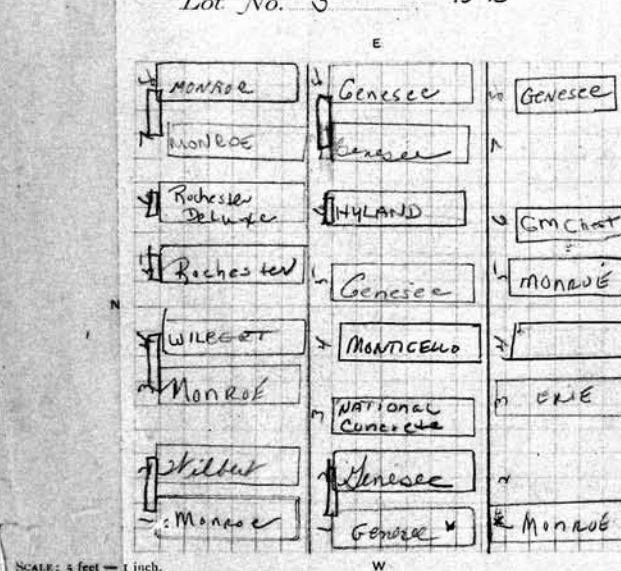 Lot No.
E
MONROE
MONROE
Rochester
DeLuxe
Rochester
WILBERT
MONROE
Wilbert
Monroe
Genesee
Genesee
HYLAND
Genesee
MONTICELLO
NATIONAL
Concrete
Genesee
Genesee *
GENESEE
GM Chest
MONROE
ERIE
* MONROE
8
7
6
5
4
3
2
1
8
7
6
5
4
3
2
1
8
7
6
5
4
3
2
N
W
SCALE: 5 feet = 1 inch.